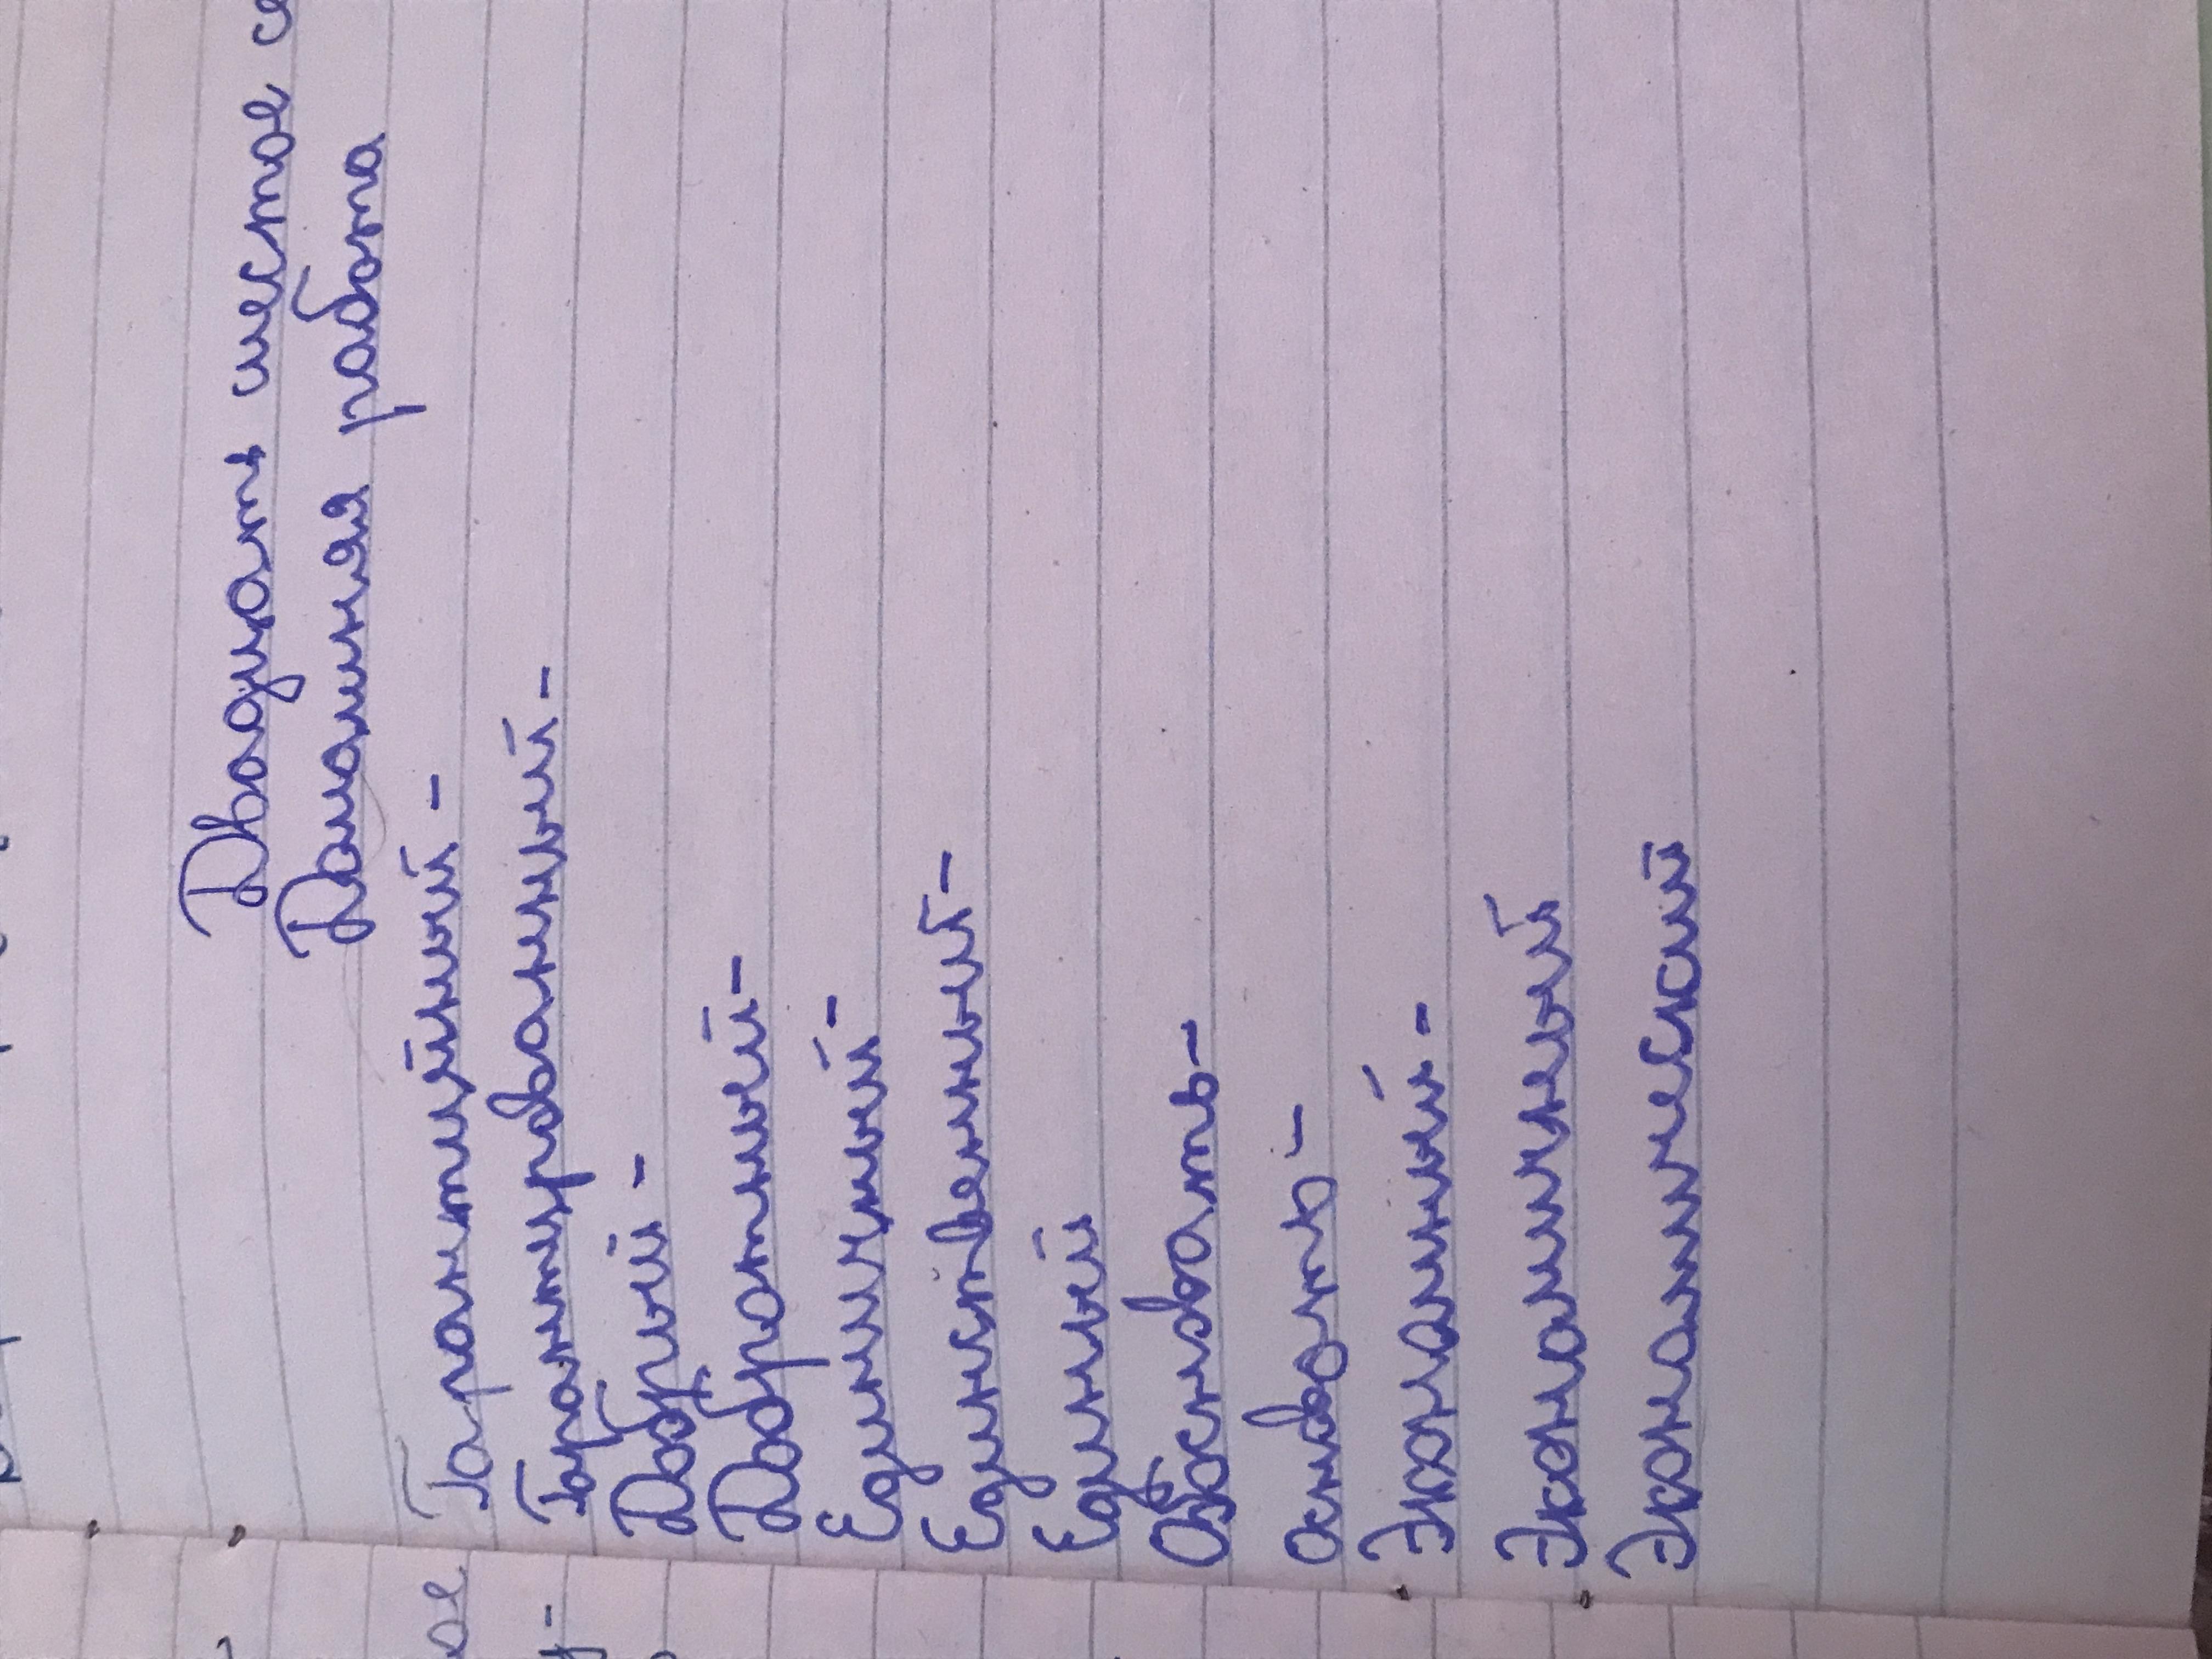 Двадцать шестое се
Домашняя работа
Гарантийный -
Гарантированный -
Добрый -
Добротный -
Единичный -
Единственный -
Единый
Обосновать -
основать -
Экономный -
Экономичный
Экономический
ое